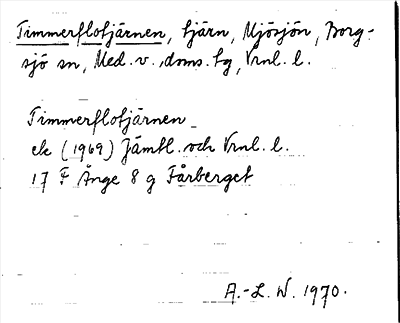 Timmerflotjärnen, tjärn, Mjösjön, Borg-
sjö sn, Med. v. doms. tg, Vrnl. l.
Timmerflotjärnen
ek (1969) Jämtl. och Vrnl. l.
17 F Ånge 8 g Fårberget
A.-L. W. 1970.